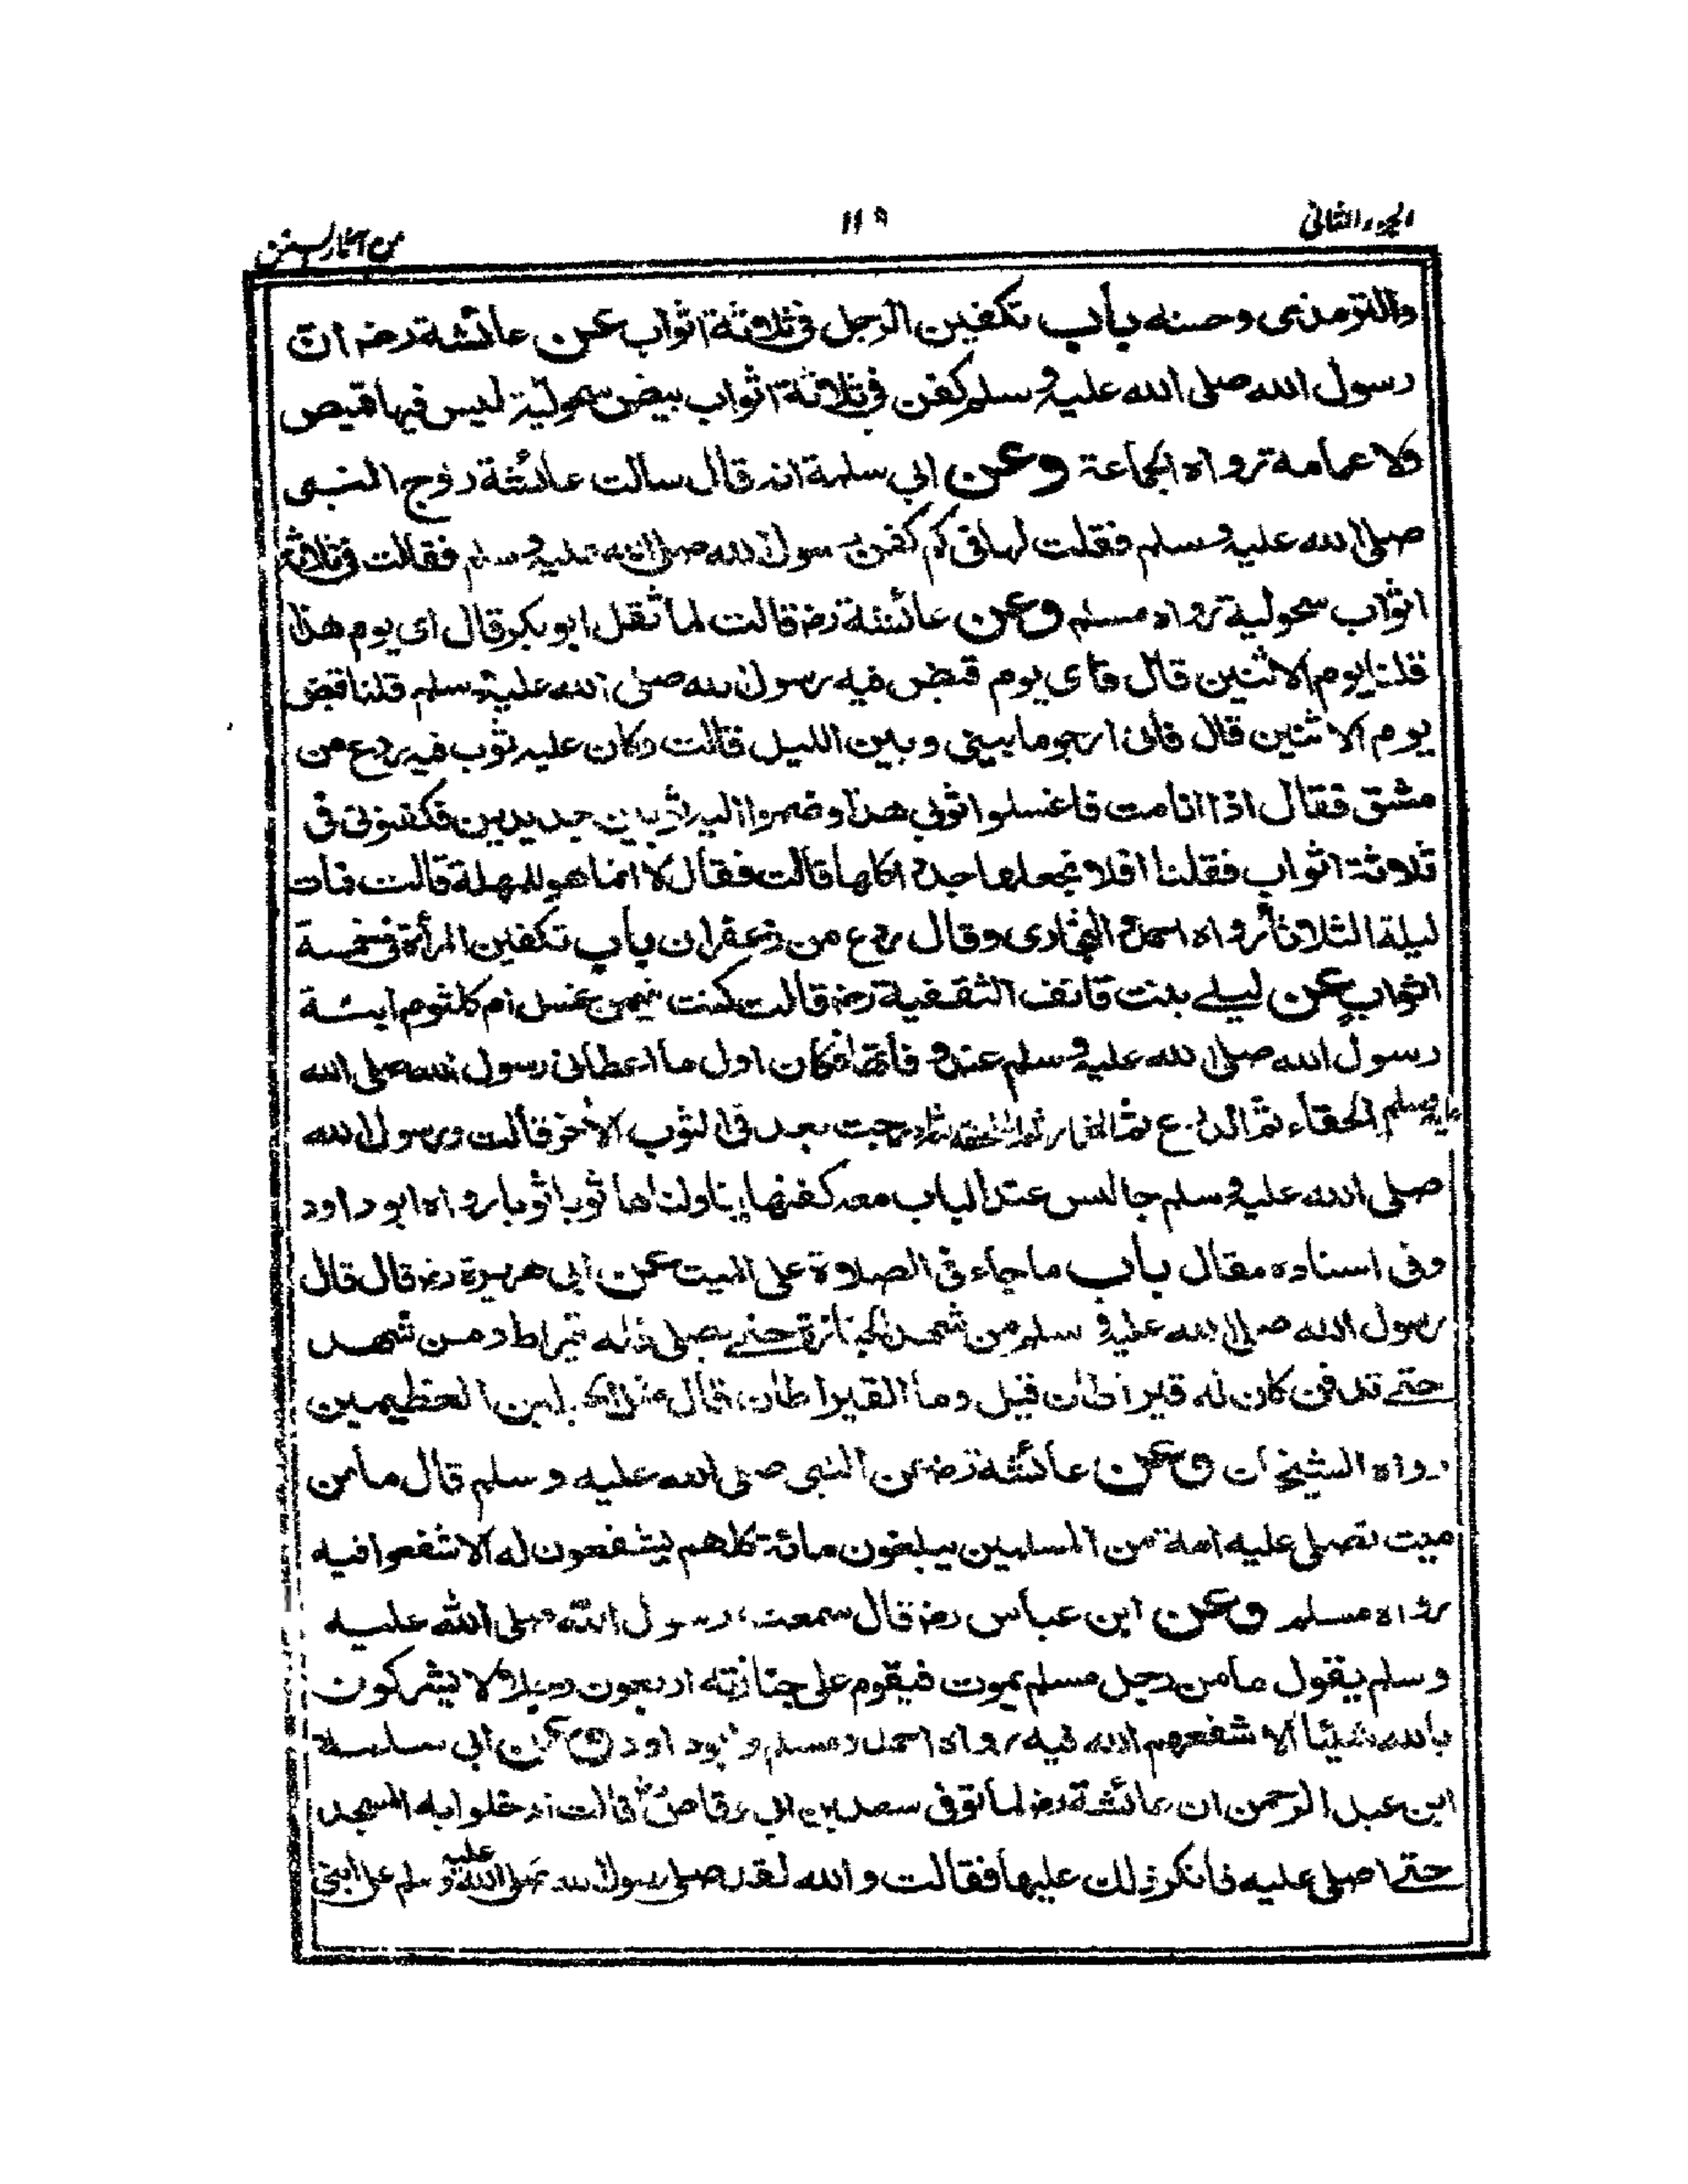 الجزء الثانى
١١٥
من آثار السنن
والترمذى وحسنه باب تكفين الرجل فى ثلاثة اثواب عن عائشة رضـ ان
رسول الله صلى الله عليه وسلم كفن فى ثلاثة اثواب بيض سحولية ليس فيها قميص
ولا عمامة رواه الجماعة وعن ابي سلمة انه قال سالت عائشة زوج النبى
صلى الله عليه وسلم فقلت لها فى كم كفن رسول الله صلى الله عليه وسلم فقالت فى ثلاثة
اثواب سحولية رواه مسلم وعن عائشة رضـ قالت لما ثقل ابو بكر قال اى يوم هذا
قلنا يوم الاثنين قال فاى يوم قبض فيه رسول الله صلى الله عليه وسلم قلنا قبض
يوم الاثنين قال فانى ارجو ما بينى وبين الليل قالت وكان عليه ثوب فيه ردع من
مشق فقال اذا انا مت فاغسلوا ثوبى هذا وضموا اليه ثوبين جديدين فكفنونى فى
ثلاثة اثواب فقلنا افلا نجعلها جدد اكلها قالت فقال لا انما هو للمهلة قالت فمات
ليلة الثلاثاء رواه احمد والبخارى وقال ردع من زعفران باب تكفين المرأة فى خمسة
اثواب عن ليلے بنت قانف الثقفية رضـ قالت كنت فيمن غسل ام كلثوم ابنة
رسول الله صلى الله عليه وسلم عند وفاتها فكان اول ما اعطانى رسول الله صلى الله
عليه وسلم الحقاء ثم الدرع ثم الخمار ثم الملحفة ثم ادرجت بعد فى الثوب الآخر قالت ورسول الله
صلى الله عليه وسلم جالس عند الباب معه كفنها يناولناها ثوبا ثوبا رواه ابو داود
وفى اسناده مقال باب ما جاء فى الصلاة على الميت عن ابى هريرة رضـ قال قال
رسول الله صلى الله عليه وسلم من شهد الجنازة حتے يصلى فله قيراط ومن شهد
حتے تدفن كان له قيراطان قيل وما القيراطان قال مثل الجبلين العظيمين
رواه الشيخان وعن عائشة رضـ عن النبى صلى الله عليه وسلم قال ما من
ميت تصلى عليه امة من المسلمين يبلغون مائة كلهم يشفعون له الا شفعوا فيه
رواه مسلم وعن ابن عباس رضـ قال سمعت رسول الله صلى الله عليه
وسلم يقول ما من رجل مسلم يموت فيقوم على جنازته اربعون رجلا لا يشركون
بالله شيئا الا شفعهم الله فيه رواه احمد ومسلم وابو داود وعن ابى سلمة
ابن عبد الرحمن ان عائشة رضـ لما توفى سعد بن ابى وقاص قالت ادخلوا به المسجد
حتے اصلى عليه فانكر ذلك عليها فقالت والله لقد صلى رسول الله صلى الله عليه وسلم على ابنى